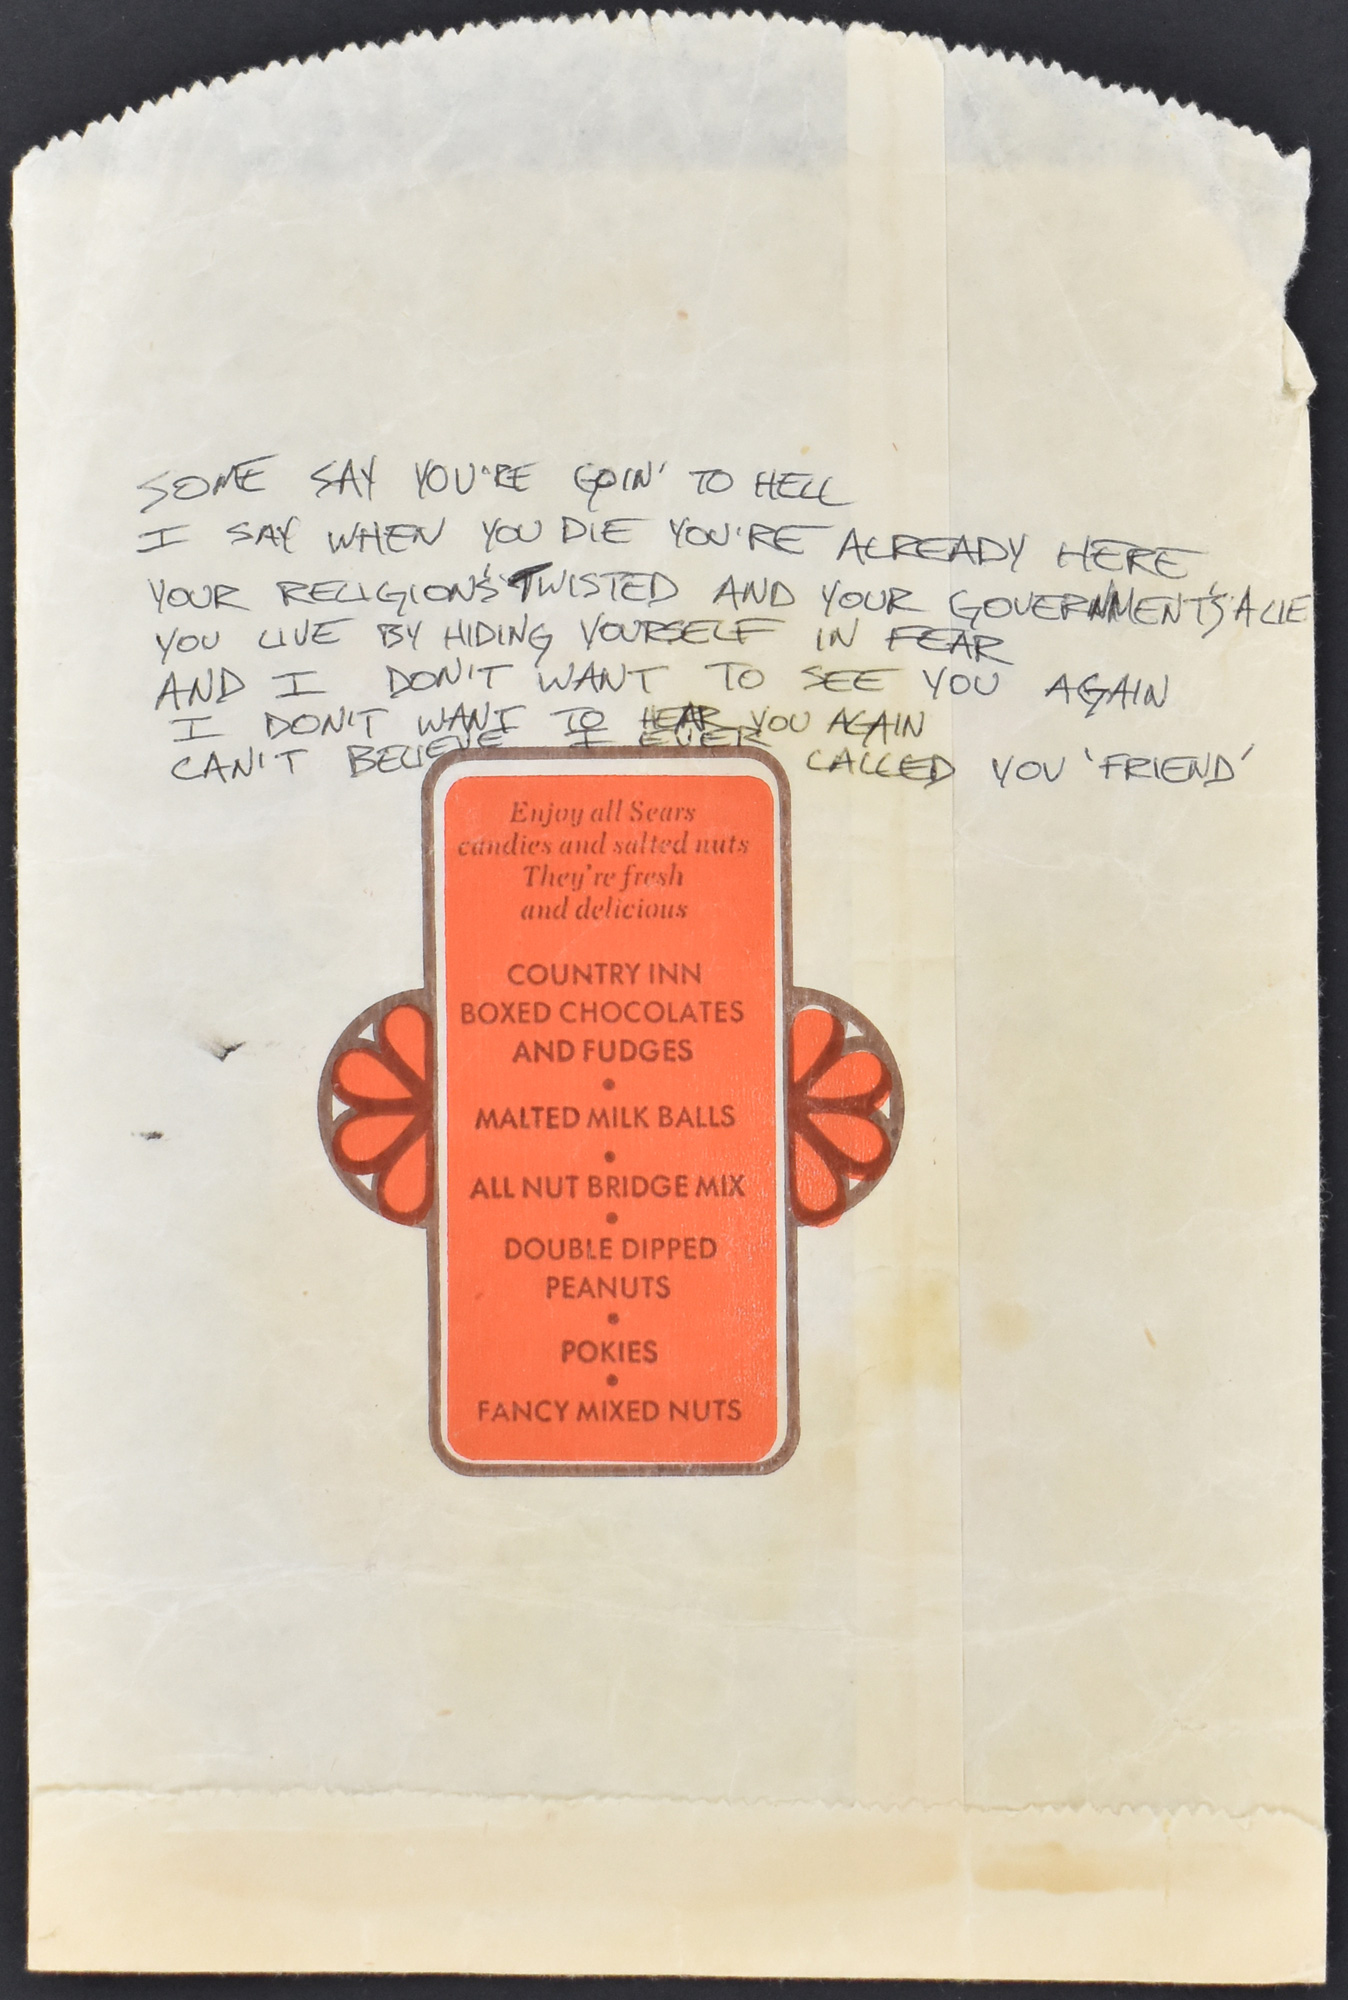 SOME SAY YOU'RE GOIN' TO HELL
I SAY WHEN YOU DIE YOU'RE ALREADY HERE
YOUR RELIGION'S TWISTED AND YOUR GOVERNMENT'S A LIE
YOU LIVE BY HIDING YOURSELF IN FEAR
AND I DON'T WANT TO SEE YOU AGAIN
I DON'T WANT TO HEAR YOU AGAIN
CAN'T BELIEVE I EVER CALLED YOU 'FRIEND'
Enjoy all Sears
candies and salted nuts
They're fresh
and delicious
COUNTRY INN
BOXED CHOCOLATES
AND FUDGES
•
MALTED MILK BALLS
•
ALL NUT BRIDGE MIX
•
DOUBLE DIPPED
PEANUTS
•
POKIES
•
FANCY MIXED NUTS